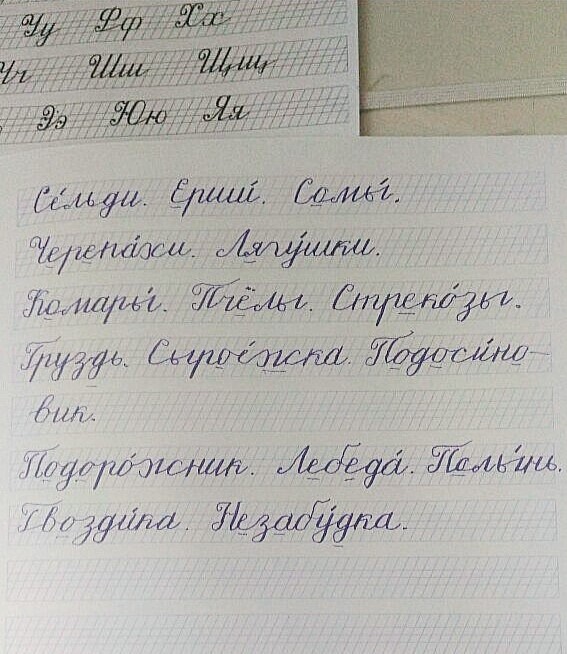 Уу Фф Хх
Чч Шш Щщ
Ээ Юю Яя
Се́льди. Ерши́. Сомы́.
Черепа́хи. Лягу́шки.
Комары́. Пчёлы. Стреко́зы.
Груздь. Сырое́жка. Подоси́но-
вик.
Подоро́жник. Лебеда́. Полы́нь.
Гвозди́ка. Незабу́дка.